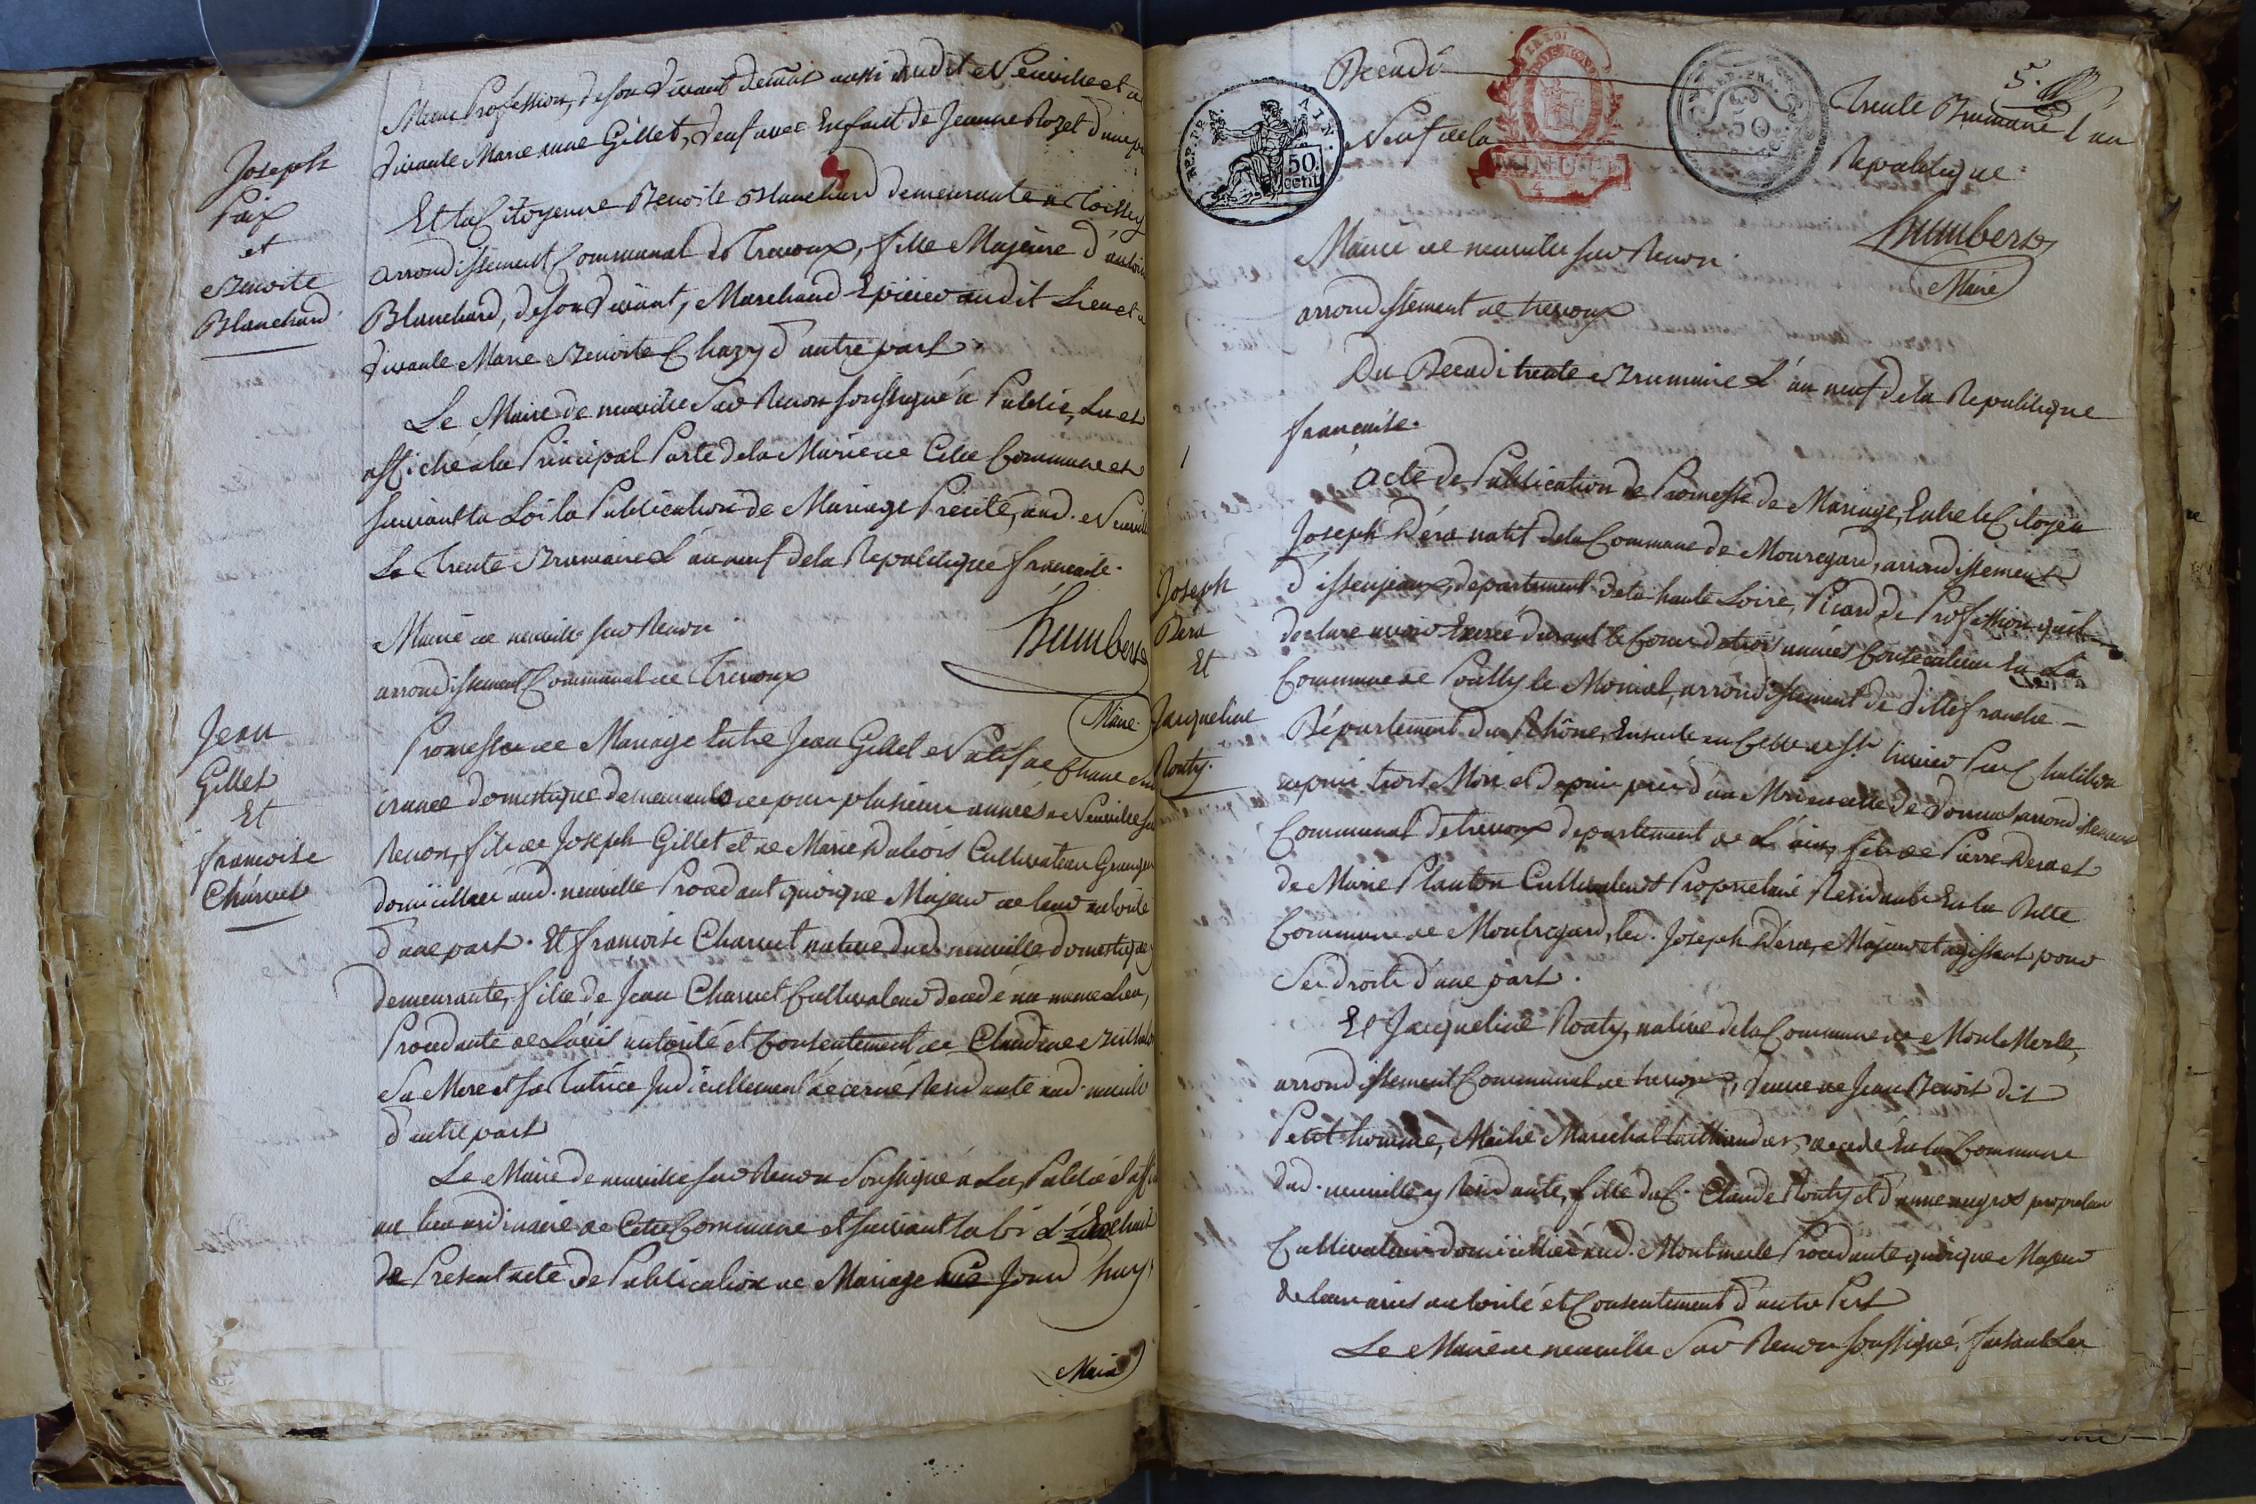 Meme Profession, de son Vivant demt aussi dudit Neuville et a
Vivante Marie anne Gillet, Veuf avec Enfant de Jeanne Rozet d'une p
Joseph
Paix
et
Benoite
Blanchard
Et la Citoyenne Benoite Blanchard demeurante a Toissey
arrondissement Communal de Trevoux, fille Majeure d'antoine
Blanchard, de son Vivant, Marchand Epicier audit Lieu et a
Vivante Marie Benoite Chazy d'autre part
Le Maire de neuville Sur Renon soussigné a Publié, Lu et
affiché a la Principal Porte de la Mairie de Cette Commune et
suivant la Loi la Publication de Mariage Precité, aud. Neuville
Le Trente Brumaire L'an neuf de la Republique francaise.
Mairie de neuville sur Renon
arrondissement Communal de Trevoux
humbert
Maire
Jean
Gillet
Et
francoise
Charvet
Promesse de Mariage Entre Jean Gillet Natif de Chane
domestique demeurant depuis plusieurs années a Neuville sur
Renon, fils de Joseph Gillet et de Marie Dubois Cultivateur Granger
domicilliés aud. neuville Procedant quoique Majeur de leur autorité
d'une part. Et francoise Charvet native dud. neuville domestique y
demeurante, fille de Jean Charvet Cultivateur decedé au meme Lieu,
Procedante de L'avis autorité et Consentement de Claudine
Sa Mere et sa Tutrice Judiciellement decerné Residante aud. neuville
d'autre part
Le Maire de neuville sur Renon Soussigné a Lu, Publié et affi
au lieu ordinaire de Cette Commune et suivant la loi L'Extrait
de Present acte de Publication de Mariage Jourd'huy
Maire
5.
Decadi Trente Brumaire L'an
Neuf de la Republique
REP. FRA. AIN.
50 cent
LA LOI
MINUTE
4
REP. FRA.
50 C.
humbert
Maire
Mairie de neuville sur Renon.
arrondissement de trevoux
Du Decadi trente Brumaire L'an neuf de la Republique
francaise.
Joseph
Déra
Et
Jacqueline
Routy.
Acte de Publication de Promesse de Mariage, Entre le Citoyen
Joseph Déra natif de la Commune de Mouregard, arrondissement
d'issenjeaux, departement de la haute Loire, Picard de Profession quil
declare avoir Exercé durant le Cours de trois années Consecutives En La
Commune de Pouilly le Monial, arrondissement de Villefranche
Département du Rhône, Ensuite en Celle de St. trivier Pres Chatillon
depuis trois Mois et depuis pres d'un Mois en celle de arrondissement
Communal de trevoux departement de L'ain, fils de Pierre Dera et
de Marie Planton Cultivateurs Proprietaire Residants En la Ditte
Commune de Montregard, led. Joseph Déra, Majeur et agissant pour
Ses droits d'une part.
Et Jacqueline Routy, native de la Commune de Mont Merle,
arrondissement Communal de trevoux, Veuve de Jean Benoit dit
Petit homme, Maitre Marechal taillandier, decedé En la Commune
dud. neuville y Residante, fille du C. Claude Routy et d'anne negros proprietaire
Cultivateurs domicilliés aud. Montmerle Procedante quoique Majeur
de leur avis autorité et Consentement d'autre Part
Le Maire de neuville Sur Renon soussigné,